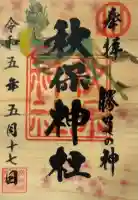 奉拝
勝負の神
秋保神社
令和五年五月十七日